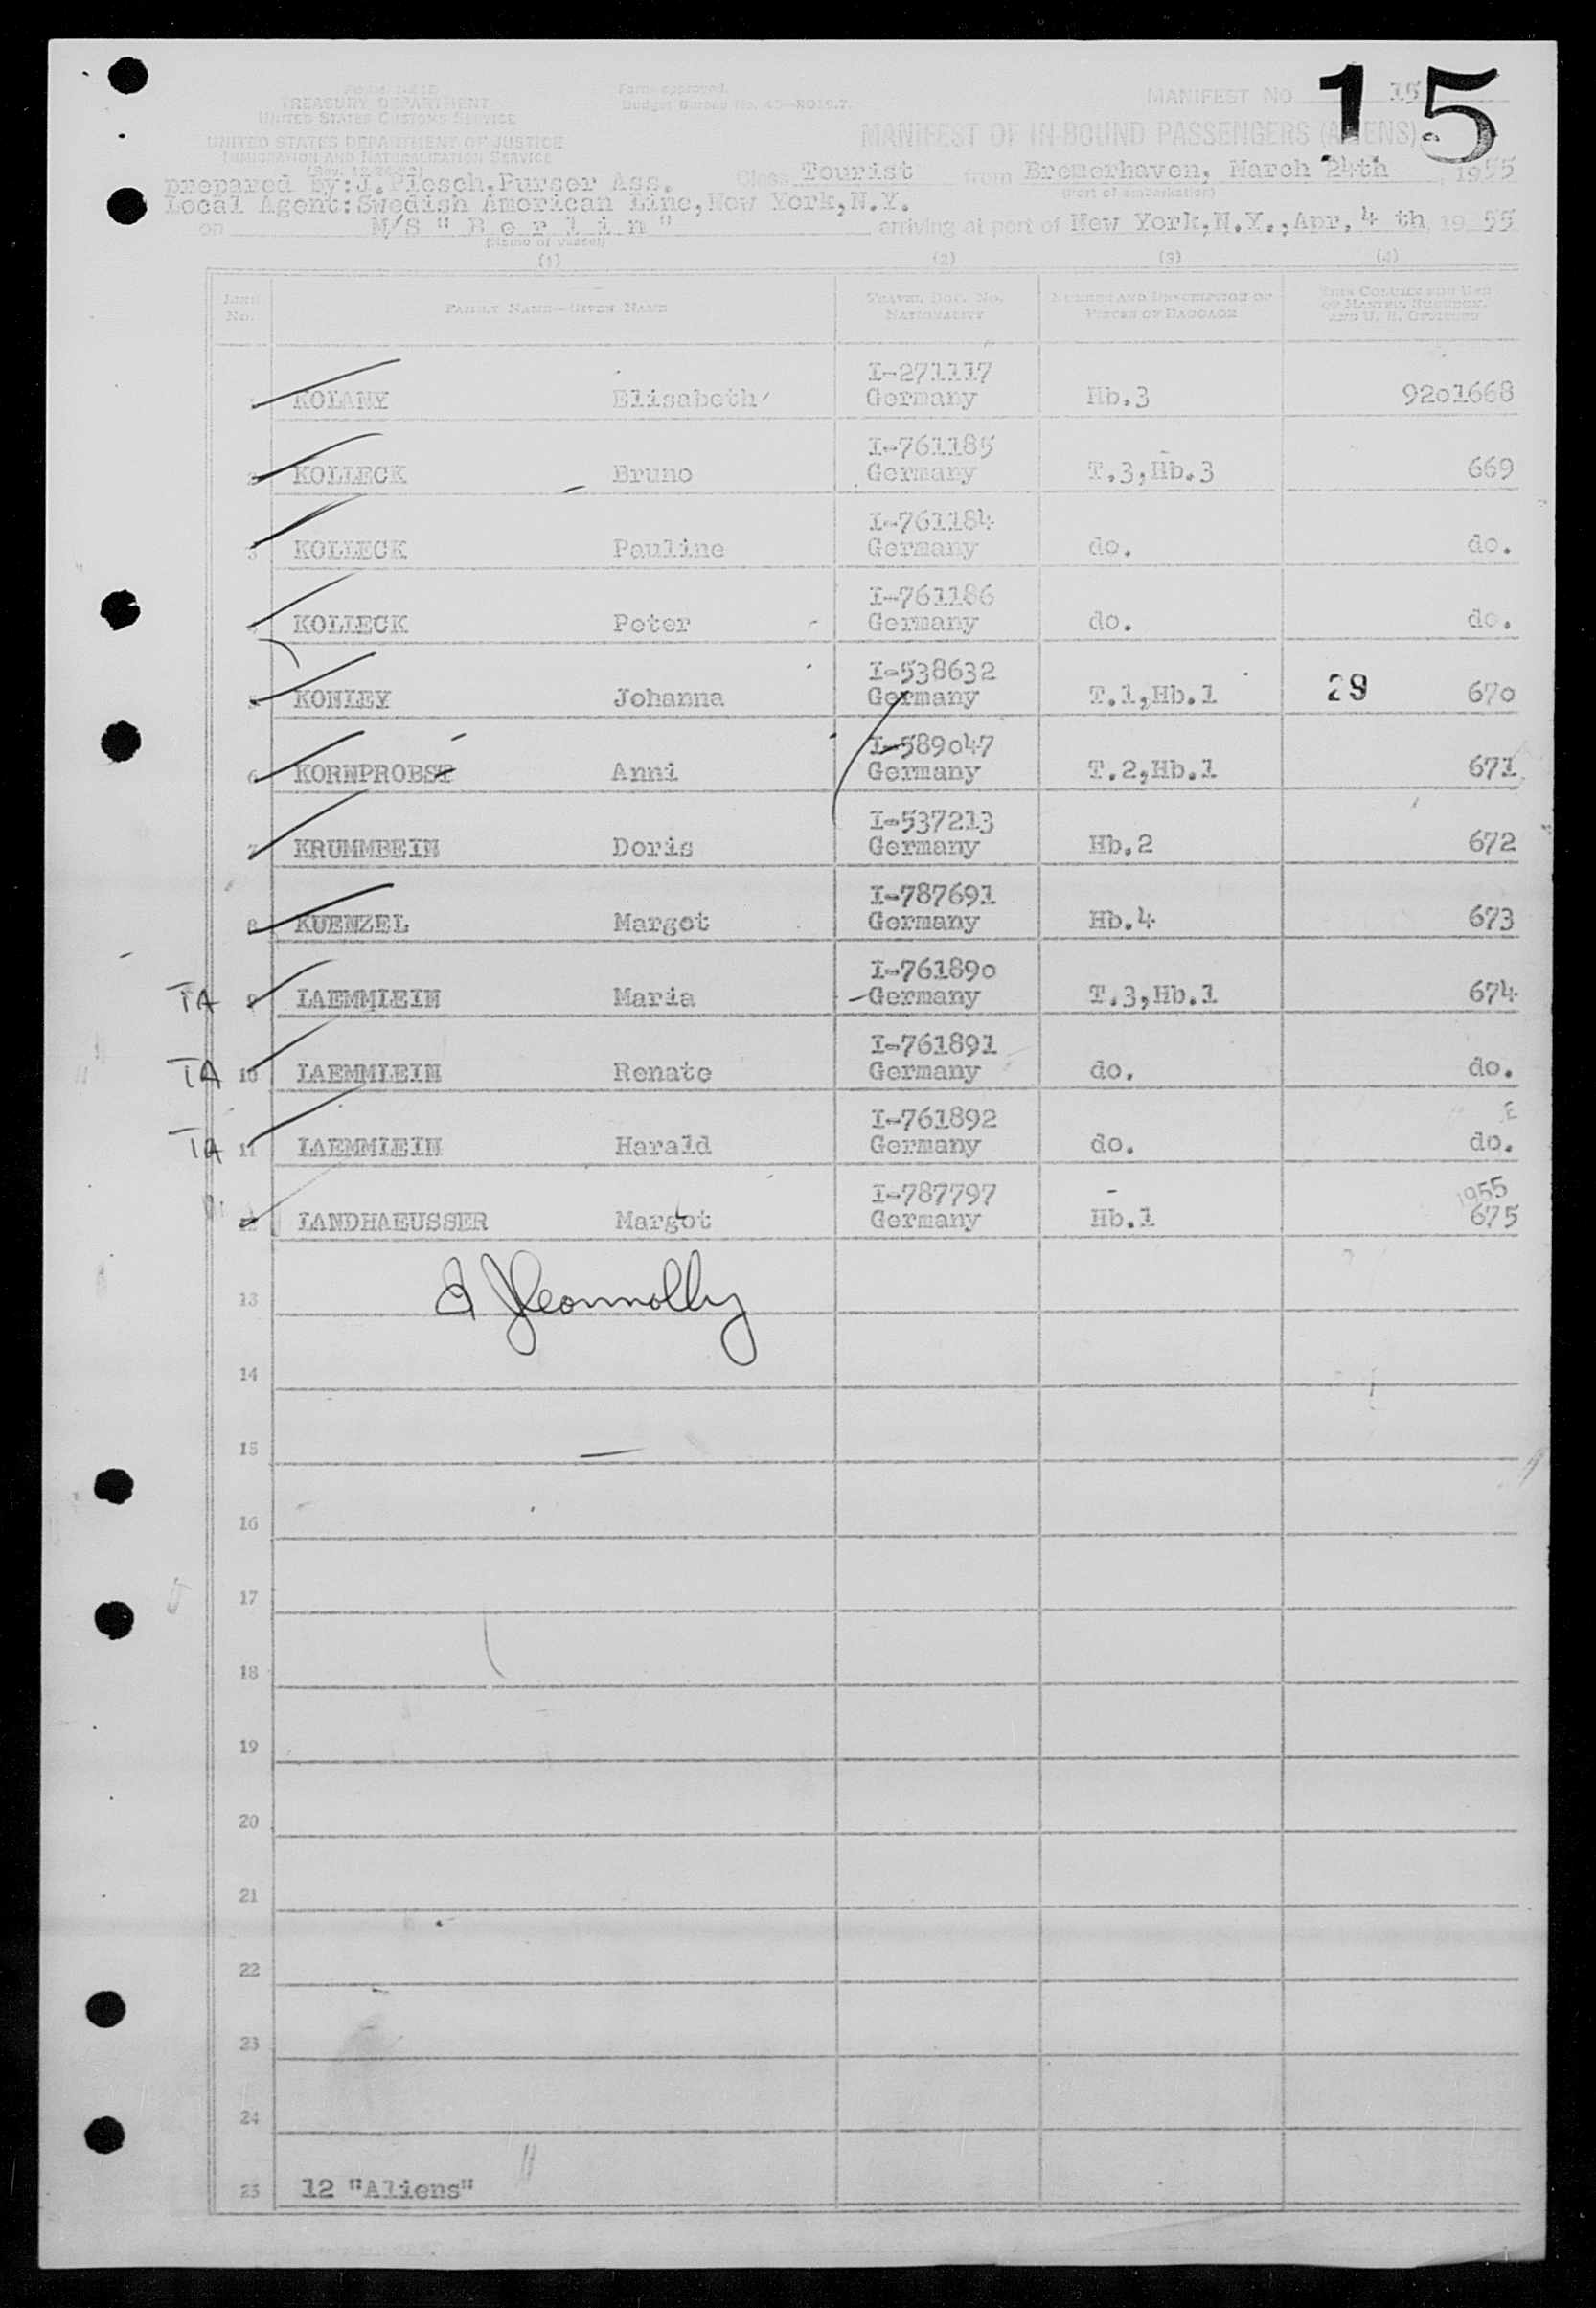 15
Form I-415
TREASURY DEPARTMENT
UNITED STATES CUSTOMS SERVICE
UNITED STATES DEPARTMENT OF JUSTICE
IMMIGRATION AND NATURALIZATION SERVICE
Form approved.
Budget Bureau No. 43-R019.7.
MANIFEST NO. 15
MANIFEST OF IN-BOUND PASSENGERS (ALIENS)
prepared by:J.Plesch,Purser Ass. Class Tourist from Bremerhaven, March 24th, 1955
(Port of embarkation)
Local Agent:Swedish American Line,New York,N.Y.
on M/S "B e r l i n" arriving at port of New York,N.Y.,Apr. 4 th, 19 55
(Name of vessel)
(1) (2) (3) (4)
LINE No. FAMILY NAME—GIVEN NAME TRAVEL DOC. No. NATIONALITY NUMBER AND DESCRIPTION OF PIECES OF BAGGAGE THIS COLUMN FOR USE OF MASTER, SURGEON, AND U. S. OFFICERS
I-271117
1 KOLANY Elisabeth Germany Hb.3 9201668
I-761185
2 KOLLECK Bruno Germany T.3,Hb.3 669
I-761184
3 KOLLECK Pauline Germany do. do.
I-761186
4 KOLLECK Peter Germany do. do.
I-538632
5 KONLEY Johanna Germany T.1,Hb.1 29 670
I-589047
6 KORNPROBST Anni Germany T.2,Hb.1 671
I-537213
7 KRUMMBEIN Doris Germany Hb.2 672
I-787691
8 KUENZEL Margot Germany Hb.4 673
I-761890
TA 9 LAEMMLEIN Maria Germany T.3,Hb.1 674
I-761891
TA 10 LAEMMLEIN Renate Germany do. do.
I-761892
TA 11 LAEMMLEIN Harald Germany do. do.
I-787797 1955
12 LANDHAEUSSER Margot Germany Hb.1 675
13 Connolly
14
15
16
17
18
19
20
21
22
23
24
25 12 "Aliens"